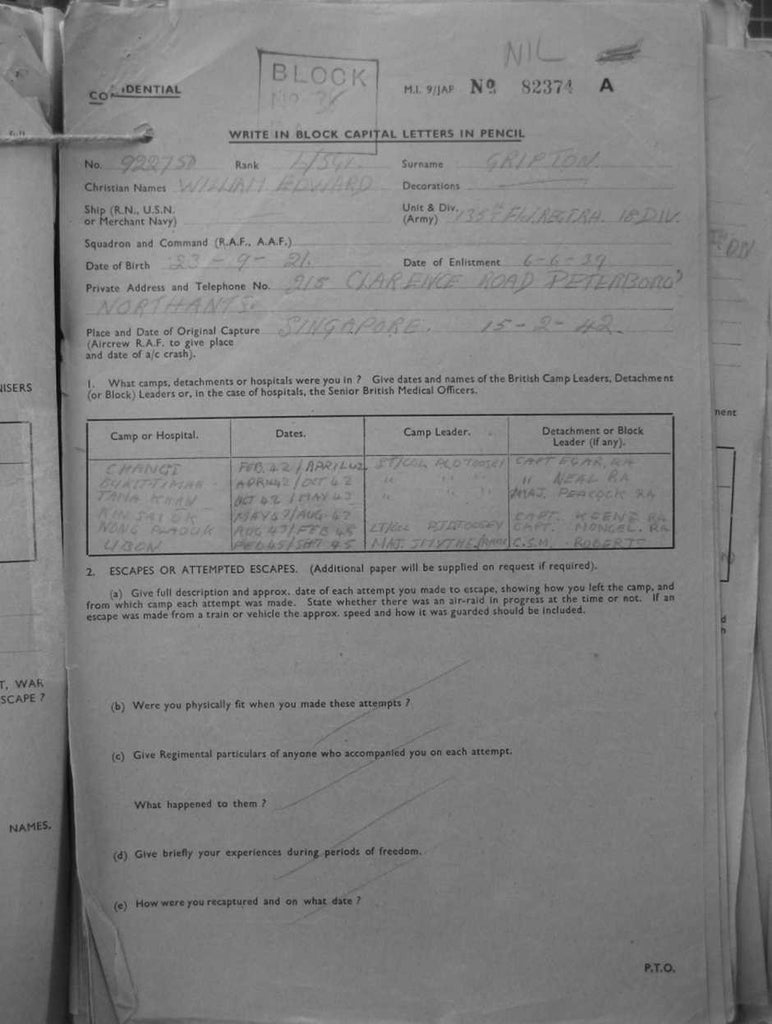 NIL
BLOCK
No
CO IDENTIAL
M.I. 9/JAP No 82374 A
WRITE IN BLOCK CAPITAL LETTERS IN PENCIL
No. 922750 Rank L/SGT. Surname GRIPTON.
Christian Names WILLIAM EDWARD Decorations
Ship (R.N., U.S.N.
or Merchant Navy)
Unit & Div.
(Army) 135th FLD REGT RA. 18 DIV.
Squadron and Command (R.A.F., A.A.F.)
Date of Birth 23-9-21. Date of Enlistment 6-6-39
Private Address and Telephone No. 215 CLARENCE ROAD PETERBORO'
NORTHANTS.
Place and Date of Original Capture SINGAPORE. 15-2-42.
(Aircrew R.A.F. to give place
and date of a/c crash).
1. What camps, detachments or hospitals were you in ? Give dates and names of the British Camp Leaders, Detachment
(or Block) Leaders or, in the case of hospitals, the Senior British Medical Officers.
Camp or Hospital. Dates. Camp Leader. Detachment or Block
Leader (if any).
CHANGI FEB.42/APRIL42 LT/COL TOOSEY CAPT EGAR, RA
BUKIT TIMAH. APRIL42/OCT 42 " " " " NEAL RA
TAMA KHAN OCT 42/MAY43 " " " MAJ. PEACOCK RA
KINSAIOK MAY43/AUG 43 CAPT. KEENE RA
NONG PLADUK AUG 43/FEB 45 LT/COL TOOSEY CAPT. RA
UBON FEB45/SEPT 45 MAJ. SMYTHE C.S.M. ROBERTS
2. ESCAPES OR ATTEMPTED ESCAPES. (Additional paper will be supplied on request if required).
(a) Give full description and approx. date of each attempt you made to escape, showing how you left the camp, and
from which camp each attempt was made. State whether there was an air-raid in progress at the time or not. If an
escape was made from a train or vehicle the approx. speed and how it was guarded should be included.
(b) Were you physically fit when you made these attempts ?
(c) Give Regimental particulars of anyone who accompanied you on each attempt.
What happened to them ?
(d) Give briefly your experiences during periods of freedom.
(e) How were you recaptured and on what date ?
P.T.O.
ISERS
T, WAR
SCAPE ?
NAMES.
nent